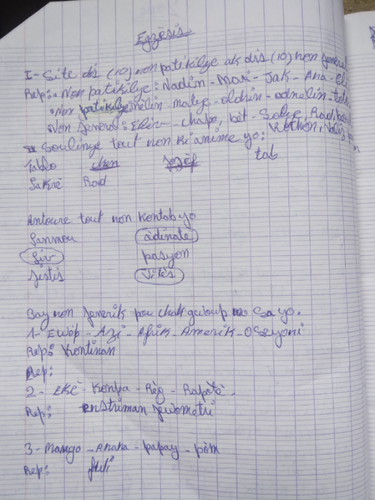 Egzèsis
I- Site dis (10) non patikilye ak dis (10) non jeneral
Rep:- Non patikilye: Nadin - Mari - Jak - Ana -
Non patikilye: melin - malye - eldrin - odnelin -
Non jeneral: Elèv - chapo, bèt - Solye, Rad,
Soulinye tout non ki anime yo:
Tablo chen Jozèf tab
Sakrè Rad
Antoure tout non kontab yo
Lanmou òdinatè
Liv pasyon
Jistis Jilèt
Bay non jenerik pou chak gwoup mo sa yo.
1- Ewòp - Azi - Afrik - Amerik - Oseyani
Rep: Kontinan
Rep:
2- Ekè - Konpa - Règ - Rapòtè -
Rep: enstriman jewometri
3- Mango - Anana - papay - pòm
Rep: fwi